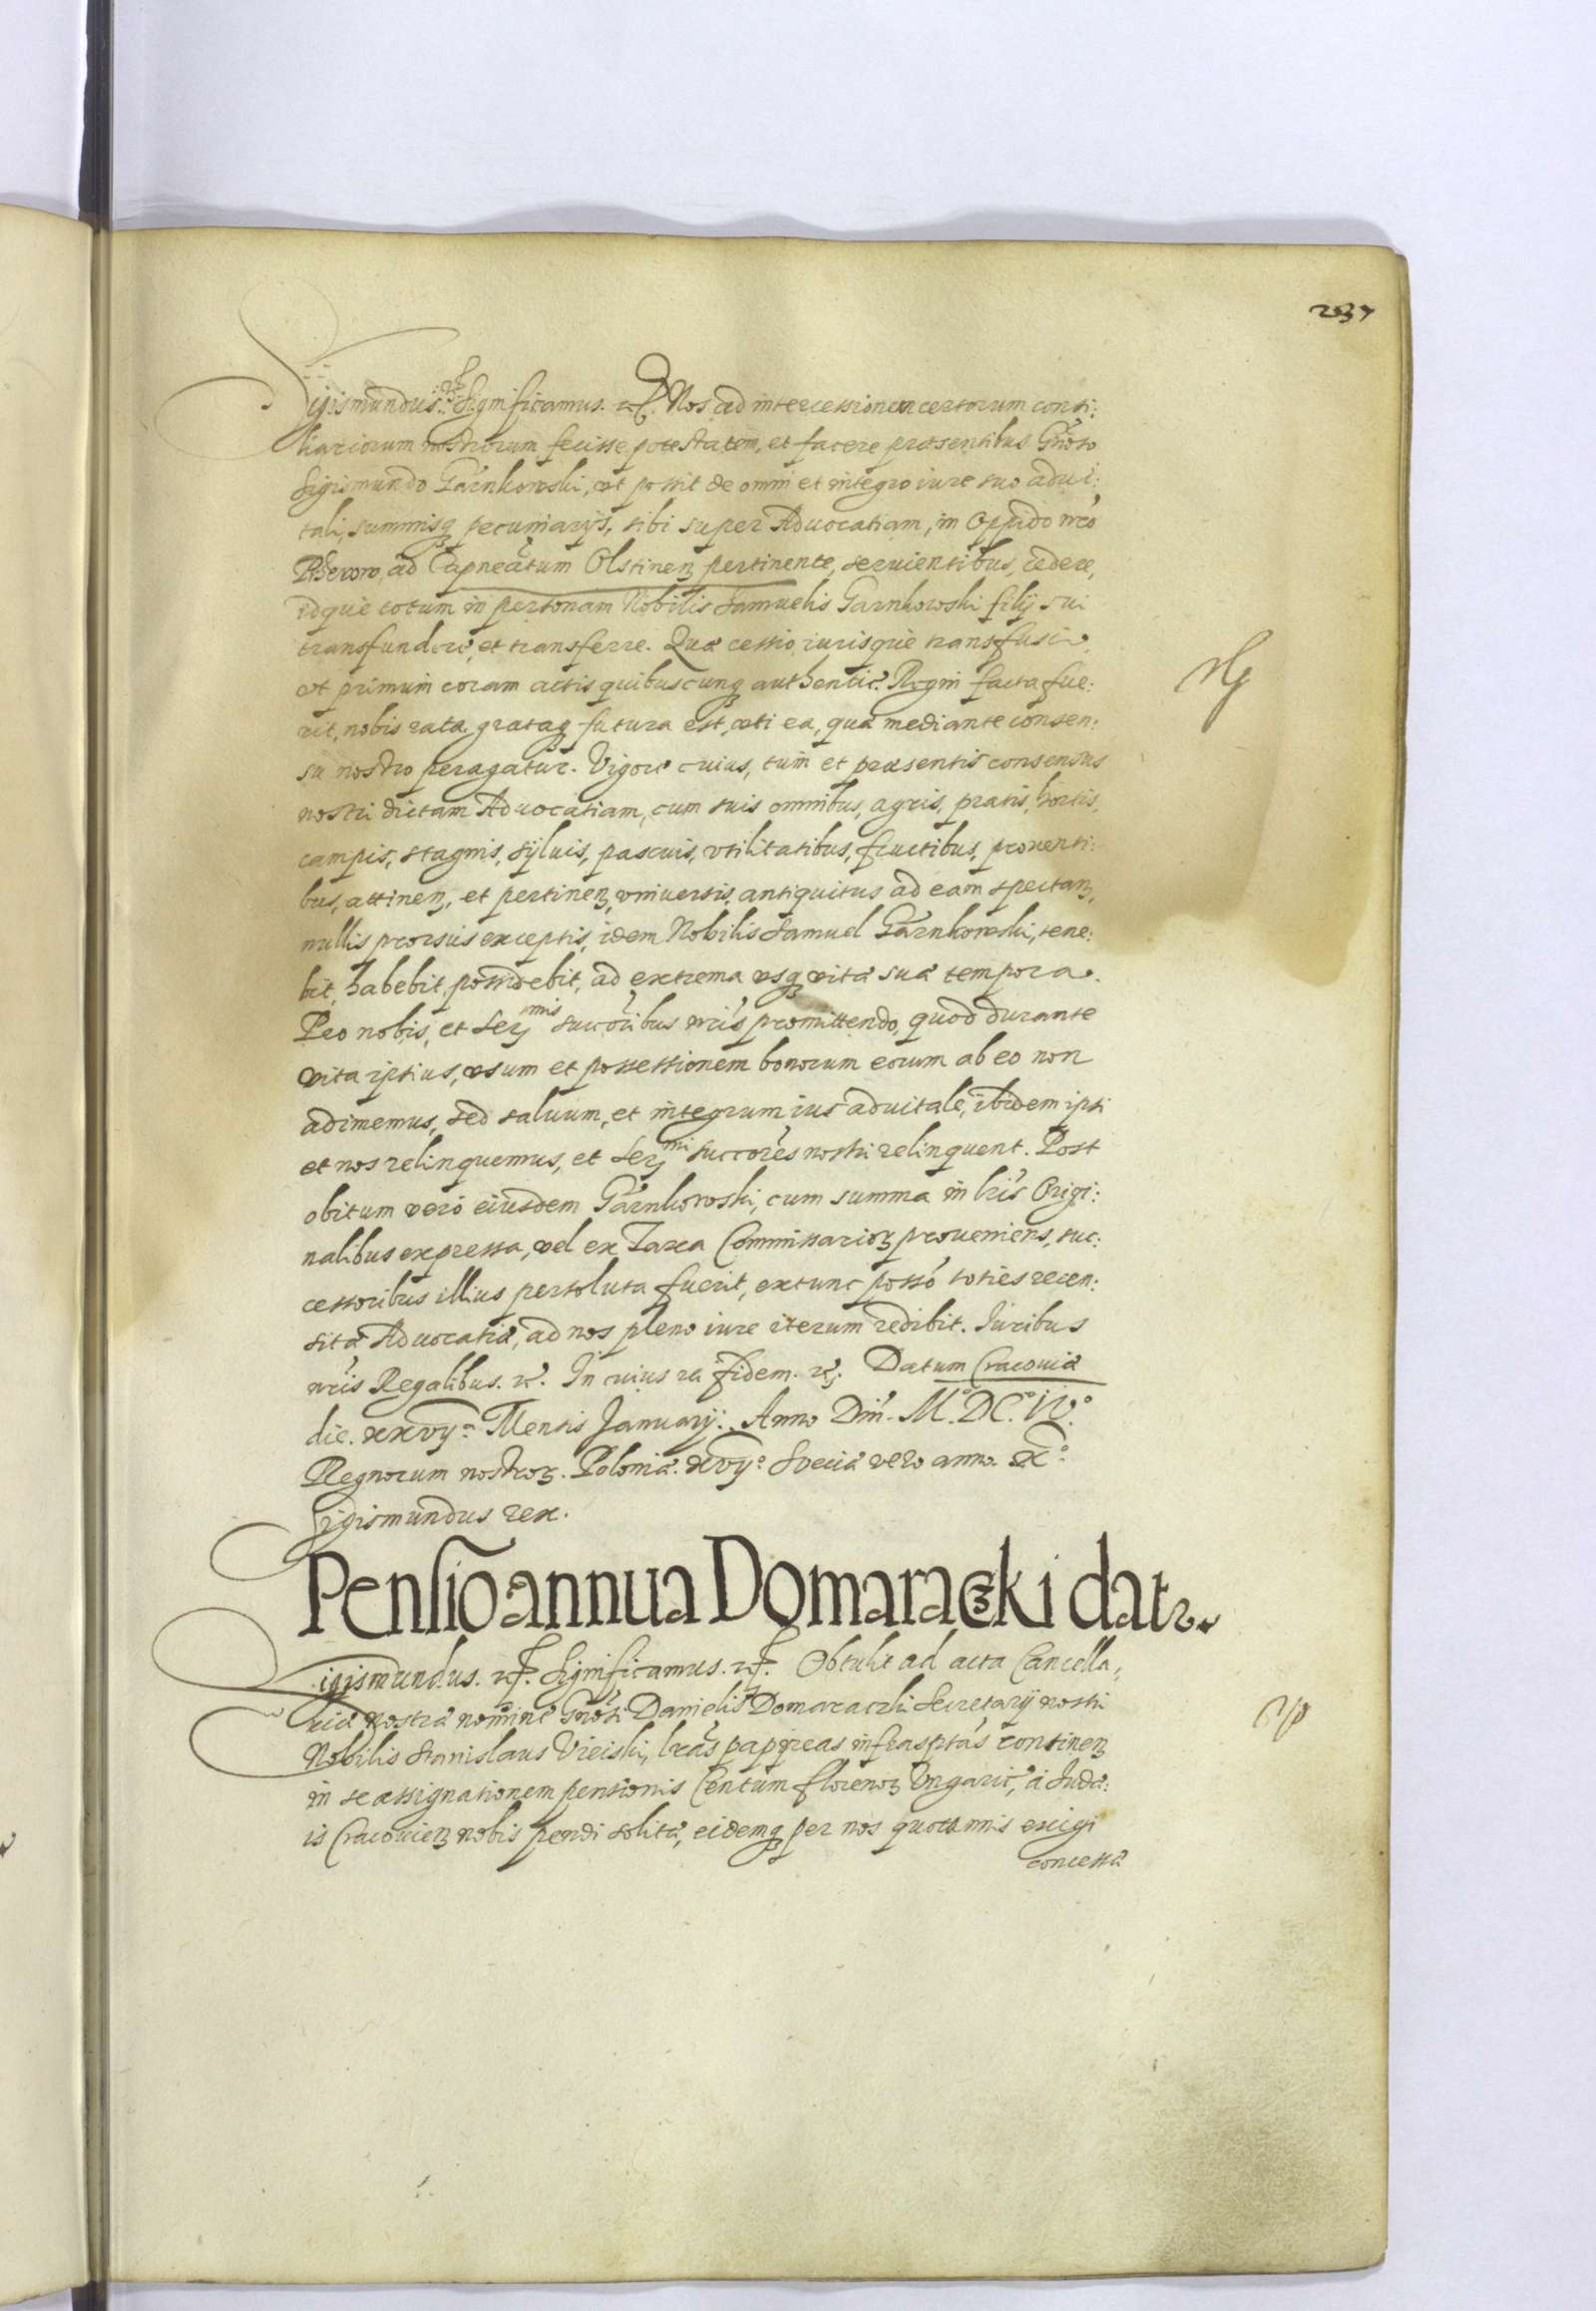 237
Sigismundus. etc. Significamus. etc. Nos ad intercessionem certorum consi:
liariorum nostrorum fecisse potestatem, et facere præsentibus Gnoso
Sigismundo Garnkowski, vt possit de omni et integro iure suo advi:
tali, summisq pecuniarijs, sibi super Aduocatiam, in Oppido nro
ad Capneatum Olstinen pertinente, seruientibus, cedere,
idque totum in personam Nobilis Samuelis Garnkowski filij sui
transfundere, et transferre. Quæ cessio iurisque transfusio,
vt primum coram actis quibuscunq authentic. Regni facta fue:
rit, nobis rata grataq futura est, vti ea, quæ mediante consen:
su nostro peragatur. Vigore cuius, tum et præsentis consensus
nostri dictam Aduocatiam, cum suis omnibus, agris, pratis, hortis,
campis, stagnis, syluis, pascuis, vtilitatibus, fructibus, prouenti:
bus, attinen, et pertinen, vniuersis, antiquitus ad eam spectan,
nullis prorsus exceptis, idem Nobilis Samuel Garnkowski, tene:
bit, habebit, possidebit, ad extrema vsq vitæ suæ tempora.
Pro nobis, et Sermis succoribus nris promittendo, quod durante
vita ipsius, vsum et possessionem bonorum eorum ab eo non
adimemus, sed saluum, et integrum ius aduitale, ibidem ipsi
et nos relinquemus, et Sermi succores nostri relinquent. Post
obitum vero eiusdem Garnkowski, cum summa in lris Origi:
nalibus expressa, vel ex Taxa Commissarior proueniens, suc:
cessoribus illius persoluta fuerit, extunc posso toties recen:
sitæ Aduocatiæ, ad nos pleno iure iterum redibit. Iuribus
nris Regalibus. etc. In cuius rei fidem. etc. Datum Cracouiæ
die. xxvij.a Mensis Januarij. Anno Dni. M.o DC.o IV.o
Regnorum nostror. Poloniæ. xvij.o Sueciæ vero anno. X.o
Sigismundus rex.
Pensio annua Domaraczki datr.
Sigismundus. etc. Significamus. etc. Obtulit ad acta Cancella,
riæ nostræ nomine Gnosi Danielis Domaraczki Secretarij nostri
Nobilis Stanislaus Vieiski, lras papijreas infrascptas continen
in se assignationem pensionis Centum florenor Vngaric, a Iudæ:
is Cracouien nobis pendi solitæ, eidemq per nos quotannis exigi
concessæ